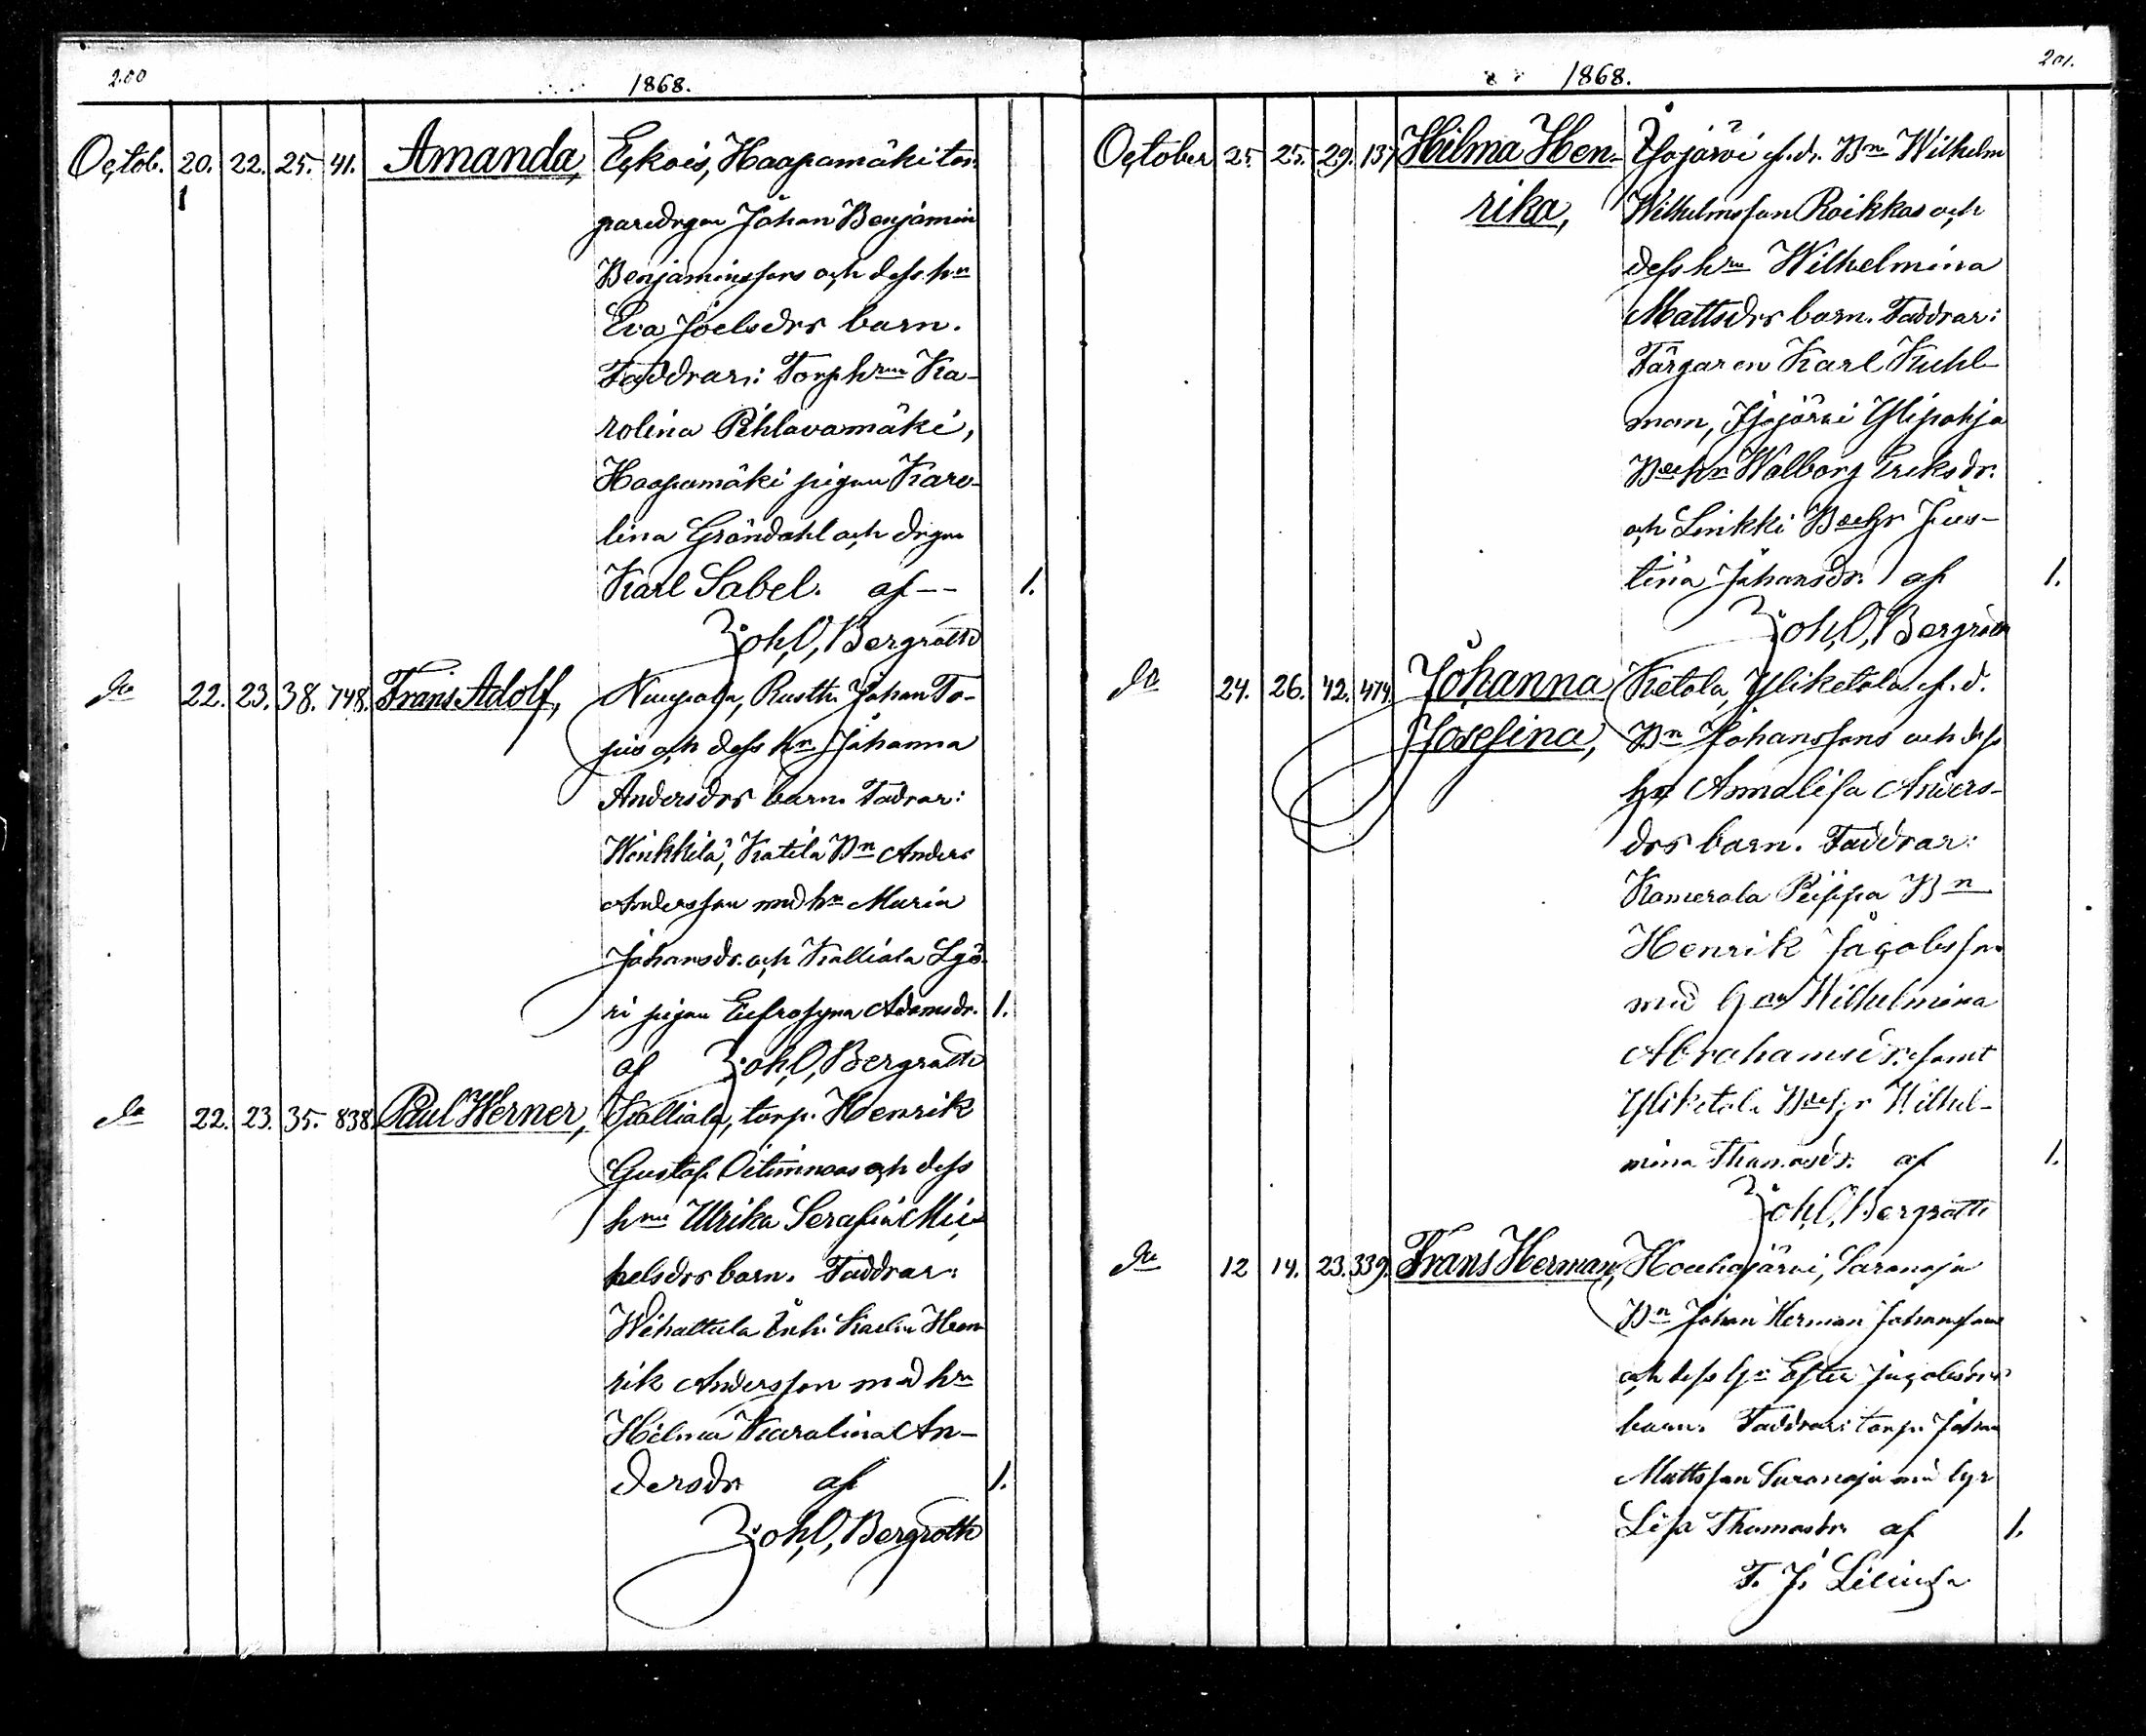 200
1868.
Octob. 20. 22. 25. 41. Amanda, Eckois, Haapamäki tor-
paredrgen Johan Benjamin
Benjaminssons och dess hn
Eva Joelsdrs barn.
Faddrar: Torp hrun Ka-
rolina Pihlavamäki,
Haapamäki pigan Karo-
lina Gröndahl och drgn
Karl Sabel. af -- 1.
Joh. O, Bergroth
do 22. 23. 38. 748. Frans Adolf, Rusth. Johan To-
och dess hn Johanna
Andersdrs barn. Fadrar:
Katila Bn Anders
Andersson med hn Maria
Johansdr. och Kalliala
ri pigan Eufrosyna Adamsdr. 1.
af Joh. O, Bergroth
do 22. 23. 35. 838. Paul Werner, Kalliala, torp. Henrik
Gustaf och dess
hru Ulrika Serafia Mic-
helsdrs barn. Faddrar:
Wihattula Inh. Hen
rik Andersson med hrn
Hilma Karolina An-
dersdr af 1.
Joh. O, Bergroth
201.
1868.
October 25. 25. 29. 137 Hilma Hen- f. d. Bn Wilhelm
rika, Wilhelmsson Roikkas och
dess hru Wilhelmina
Mattsdrs barn. Faddrar:
Färgaren Karl Kuhl-
man, Ylipohja
Walborg Eriksdr.
och Jus-
tina Johansdr. af 1.
Joh. O, Bergroth
do 24. 26. 42. 474. Johanna Ketola, Yliketola f. d.
Josefina, Bn Johanssons och dess
hn Annalisa Anders-
drs barn. Faddrar:
Bn
Henrik Jacobsson
med Wilhelmina
Abrahamsdr. samt
Yliketola Wilhel-
mina Thomasdr. af 1.
Joh. O, Bergroth
do 12 14. 23. 339. Frans Herman, Houhajärvi, Saranoja
Bn Johan Herman Johanssons
och dess Ester Jacobsdrs
barn. Faddrar: torp. Johan
Mattsson Saranoja med
Lisa Thomasdr. af 1.
F. J.